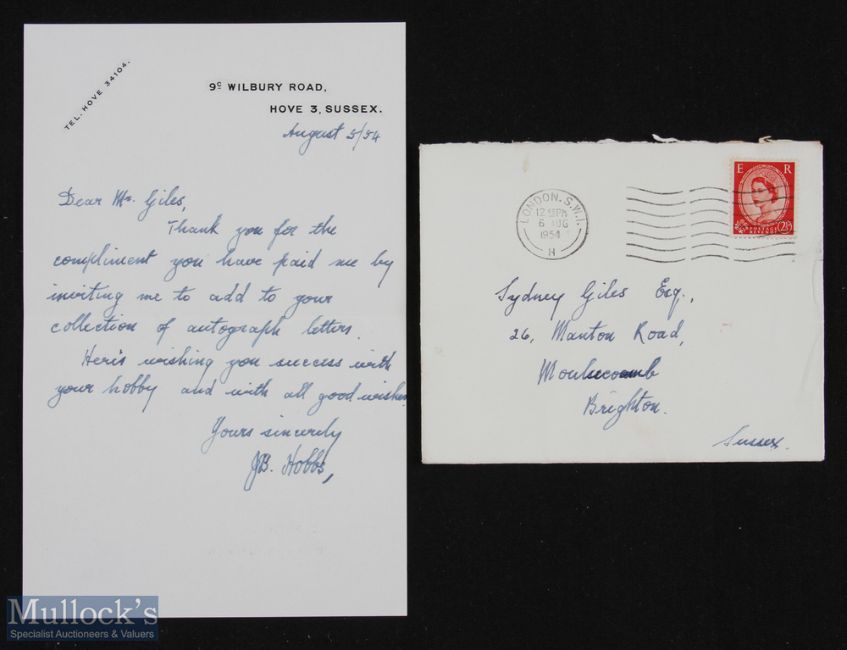 TEL. HOVE 34104.
9ᶜ WILBURY ROAD,
HOVE 3, SUSSEX.
August 5/54
Dear Mr. Giles,
Thank you for the
compliment you have paid me by
inviting me to add to your
collection of autograph letters.
Here's wishing you success with
your hobby and with all good wishes
Yours sincerely
JB. Hobbs,
LONDON. S.W.1.
12 PM
6 AUG
1954
H
E R
POSTAGE REVENUE
2½D
Sydney Giles Esq.,
26, Manton Road,
Moulsecoomb
Brighton.
Sussex.
Mullock's
Specialist Auctioneers & Valuers